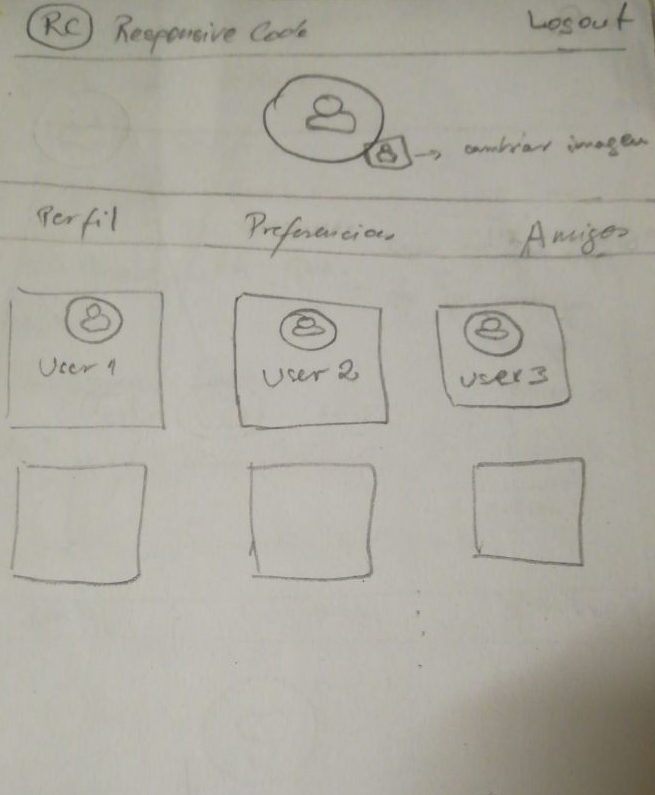 RC Responsive Code Logout
cambiar imagen
Perfil Preferencias Amigos
User 1 User 2 user 3